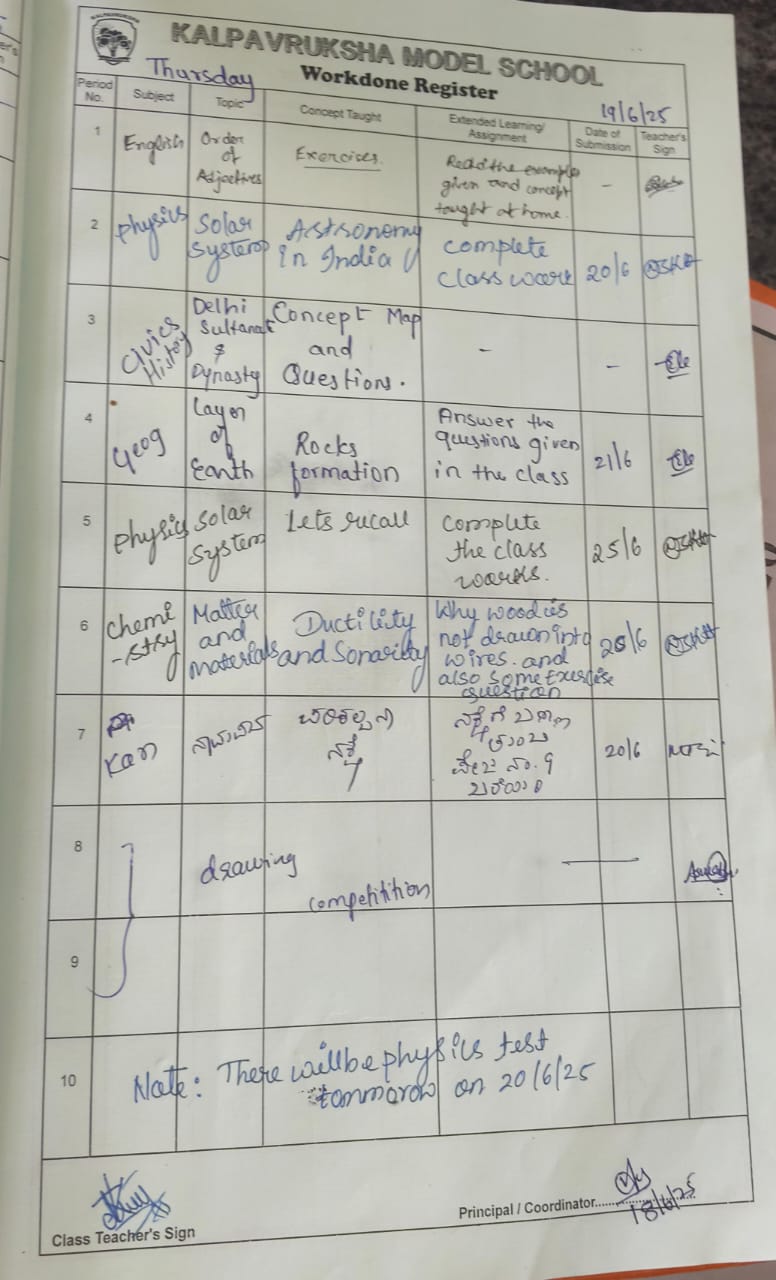 KALPAVRUKSHA MODEL SCHOOL
Thursday
Workdone Register
19/6/25
Period No.
Subject
Topic
Concept Taught
Extended Learning/
Assignment
Date of
Submission
Teacher's
Sign
1
English
Order
of
Adjectives
Exercises.
Read the example
given and concept
taught at home.
-
2
Physics
Solar
System
Astronomy
in India
complete
class work
20/6
3
Civics
History
Delhi
Sultanate
&
Dynasty
Concept Map
and
Questions.
-
-
4
Geog
Layer
of
Earth
Rocks
formation
Answer the
questions given
in the class
21/6
5
Physics
Solar
System
Lets recall
complete
the class
works.
25/6
6
Chemi
-stry
Matter
and
Materials
Ductility
and Sonarity
Why wood is
not drawn into
wires. and
also some Exercise
question
20/6
7
Kan
20/6
8
drawing
competitition
9
10
Note: There will be physics test
tommorow on 20/6/25
Class Teacher's Sign
Principal / Coordinator
18/6/25